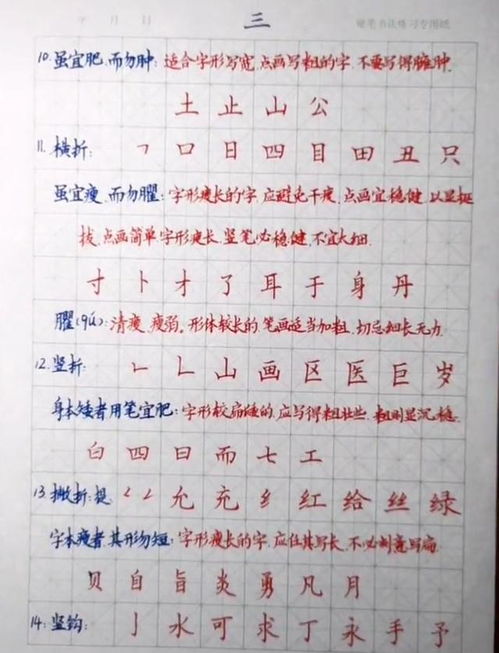 年 月 日 三 硬笔书法练习专用纸
10.虽宜肥,而勿肿:适合字形写宽,点画写粗的字,不要写得臃肿.
土 止 山 公
11.横折: ㇕ 口 日 四 目 田 丑 只
虽宜瘦,而勿臞:字形瘦长的字,应避免干瘦,点画宜稳健,以显挺
拔,点画简单,字形瘦长,竖笔必稳健,不宜太细.
寸 卜 才 了 耳 于 身 丹
臞(qú):清瘦,瘦弱.形体较长的,笔画适当加粗,切忌细长无力.
12.竖折: ㇗ ㇄ 山 画 区 医 巨 岁
身本矮者用笔宜肥:字形较扁矮的,应写得粗壮些,粗则显沉稳.
白 四 曰 而 七 工
13.撇折:提 ㇜ ㇜ 允 充 纟 红 给 丝 绿
字本瘦者,其形勿短:字形瘦长的字,应任其写长,不必刻意写扁.
贝 自 旨 炎 勇 凡 月
14.竖钩: 亅 水 可 求 丁 永 手 予